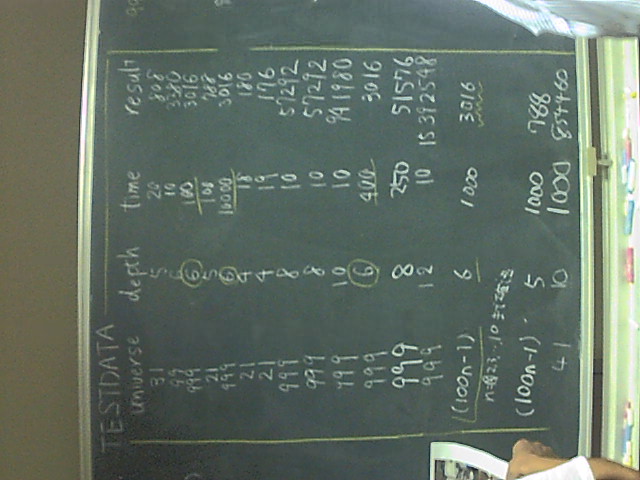 TESTDATA
universe depth time result
31 5 20 808
99 6 10 3280
999 6 100 3016
21 5 100 788
999 6 10000 3016
21 4 18 180
21 4 19 196
999 8 10 57292
999 8 10 57292
999 10 10 941980
999 6 400 3016
999 8 250 51576
999 12 10 15392548
(100n-1) 6 1000 3016
(100n-1) 5 1000 788
41 10 1000 854460